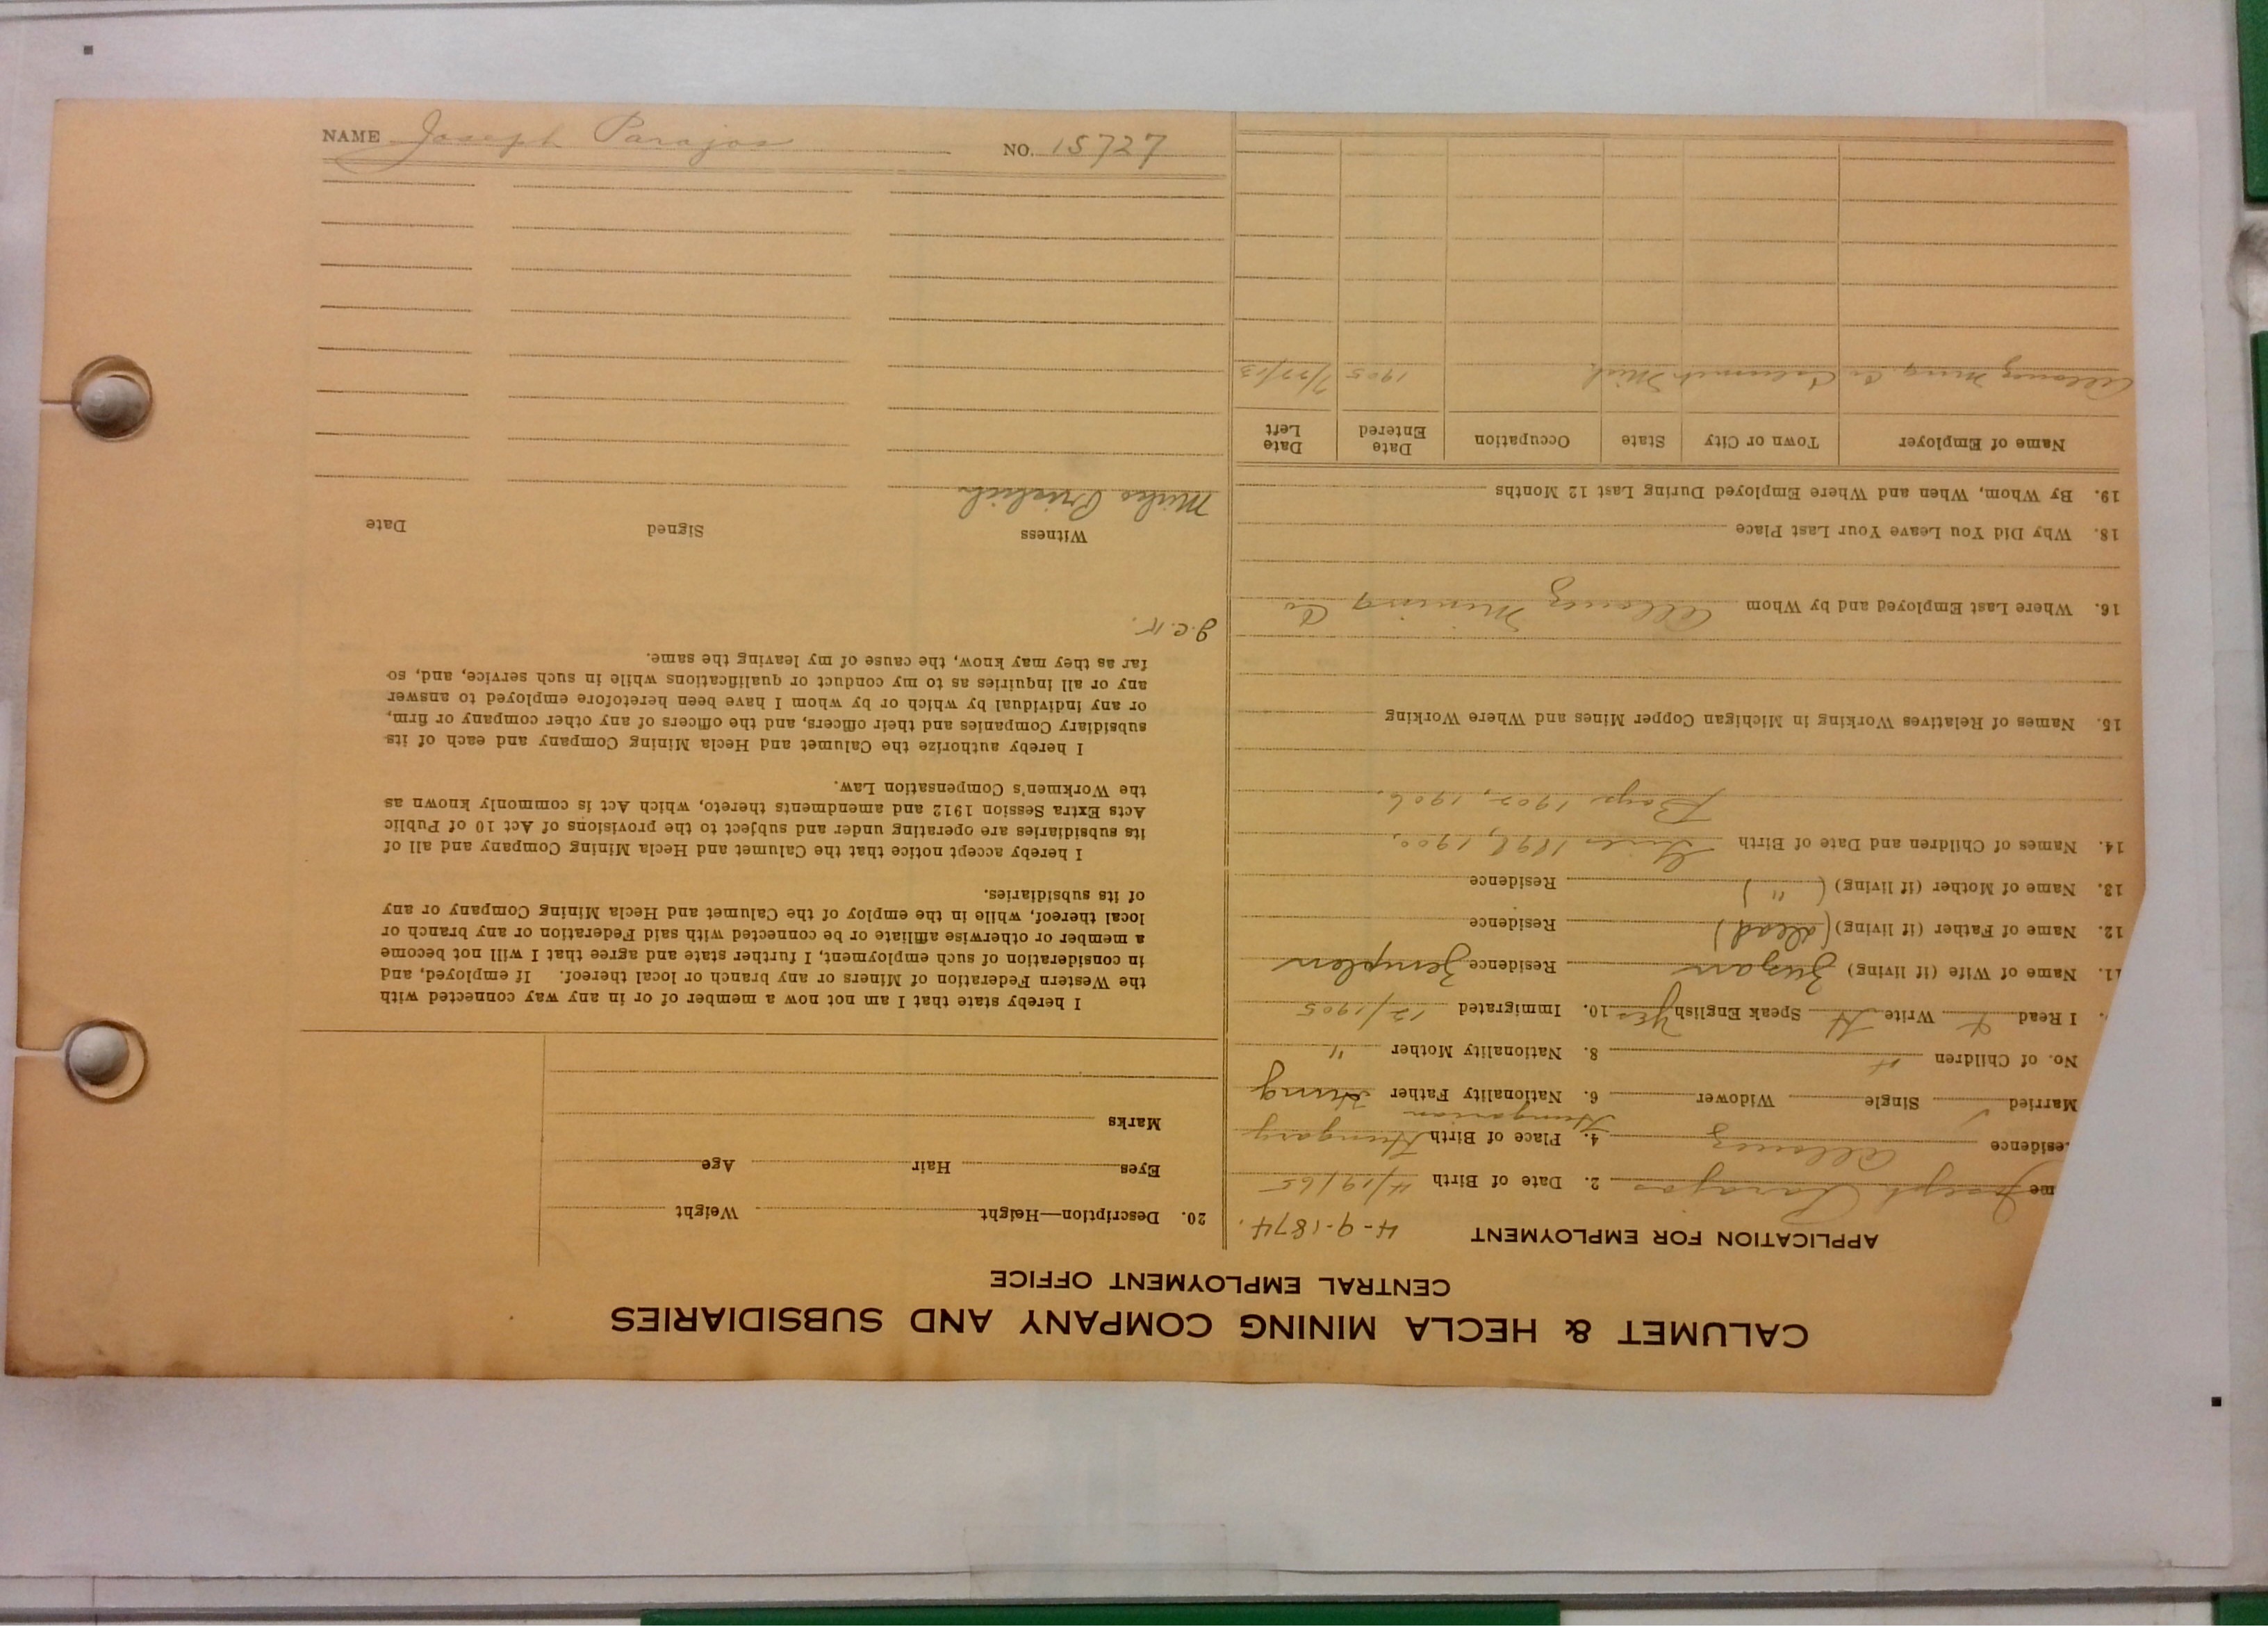 CALUMET & HECLA MINING COMPANY AND SUBSIDIARIES
CENTRAL EMPLOYMENT OFFICE
APPLICATION FOR EMPLOYMENT 4-9-1874.
me Joseph Parajos 2. Date of Birth 4/19/65
esidence Allouez 4. Place of Birth Hungary
Hungarian
Married / Single Widower 6. Nationality Father Hung
No. of Children 4 8. Nationality Mother "
I Read Write Speak English Yes 10. Immigrated 12/1905
11. Name of Wife (if living) Zuzan Residence Zemplen
12. Name of Father (if living) (dead) Residence
13. Name of Mother (if living) ( " ) Residence
14. Names of Children and Date of Birth Girls 1898, 1900,
Boys 1902, 1906.
15. Names of Relatives Working in Michigan Copper Mines and Where Working
16. Where Last Employed and by Whom Allouez Mining Co
18. Why Did You Leave Your Last Place
19. By Whom, When and Where Employed During Last 12 Months
Name of Employer Town or City State Occupation Date Entered Date Left
Allouez Ming. Co Calumet Mich 1905 7/22/13
20. Description—Height Weight
Eyes Hair Age
Marks
I hereby state that I am not now a member of or in any way connected with
the Western Federation of Miners or any branch or local thereof. If employed, and
in consideration of such employment, I further state and agree that I will not become
a member or otherwise affiliate or be connected with said Federation or any branch or
local thereof, while in the employ of the Calumet and Hecla Mining Company or any
of its subsidiaries.
I hereby accept notice that the Calumet and Hecla Mining Company and all of
its subsidiaries are operating under and subject to the provisions of Act 10 of Public
Acts Extra Session 1912 and amendments thereto, which Act is commonly known as
the Workmen's Compensation Law.
I hereby authorize the Calumet and Hecla Mining Company and each of its
subsidiary Companies and their officers, and the officers of any other company or firm,
or any individual by which or by whom I have been heretofore employed to answer
any or all inquiries as to my conduct or qualifications while in such service, and, so
far as they may know, the cause of my leaving the same.
J.C.K.
Witness Signed Date
NAME Joseph Parajos NO. 15727